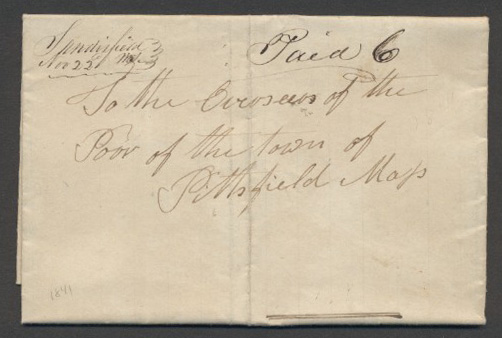 Sandisfield Ms
Nov 22
Paid 6
To the Overseers of the
Poor of the town of
Pittsfield Mass
1841